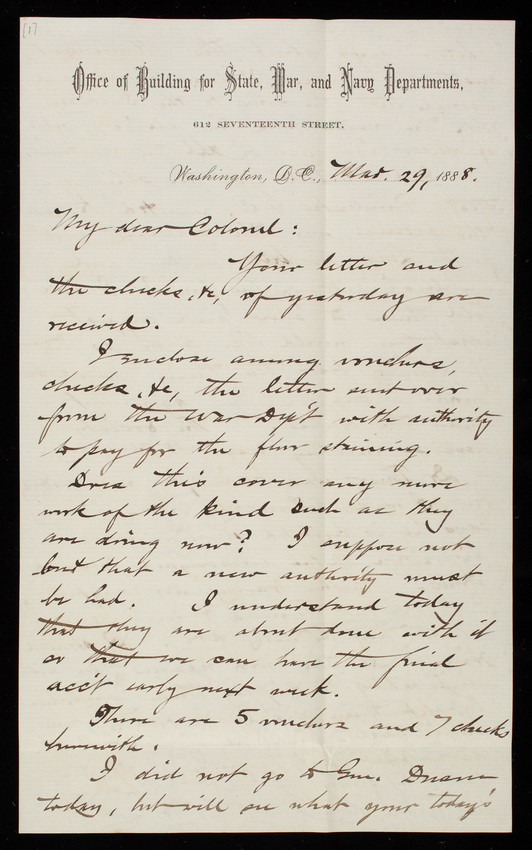 (1)
Office of Building for State, War, and Navy Departments,
612 SEVENTEENTH STREET.
Washington, D.C., Mar. 29, 1888.
My dear Colonel:
Your letter and
the checks, &c, of yesterday are
received.
I enclose among vouchers,
checks, &c, the letter sent over
from the War Dept with authority
to pay for the floor staining.
Does this cover any more
work of the kind such as they
are doing now? I suppose not
but that a new authority must
be had. I understand today
that they are about done with it
so that we can have the final
acc't early next week.
There are 5 vouchers and 7 checks
herewith.
I did not go to Gen. Duane
today, but will see what your today's